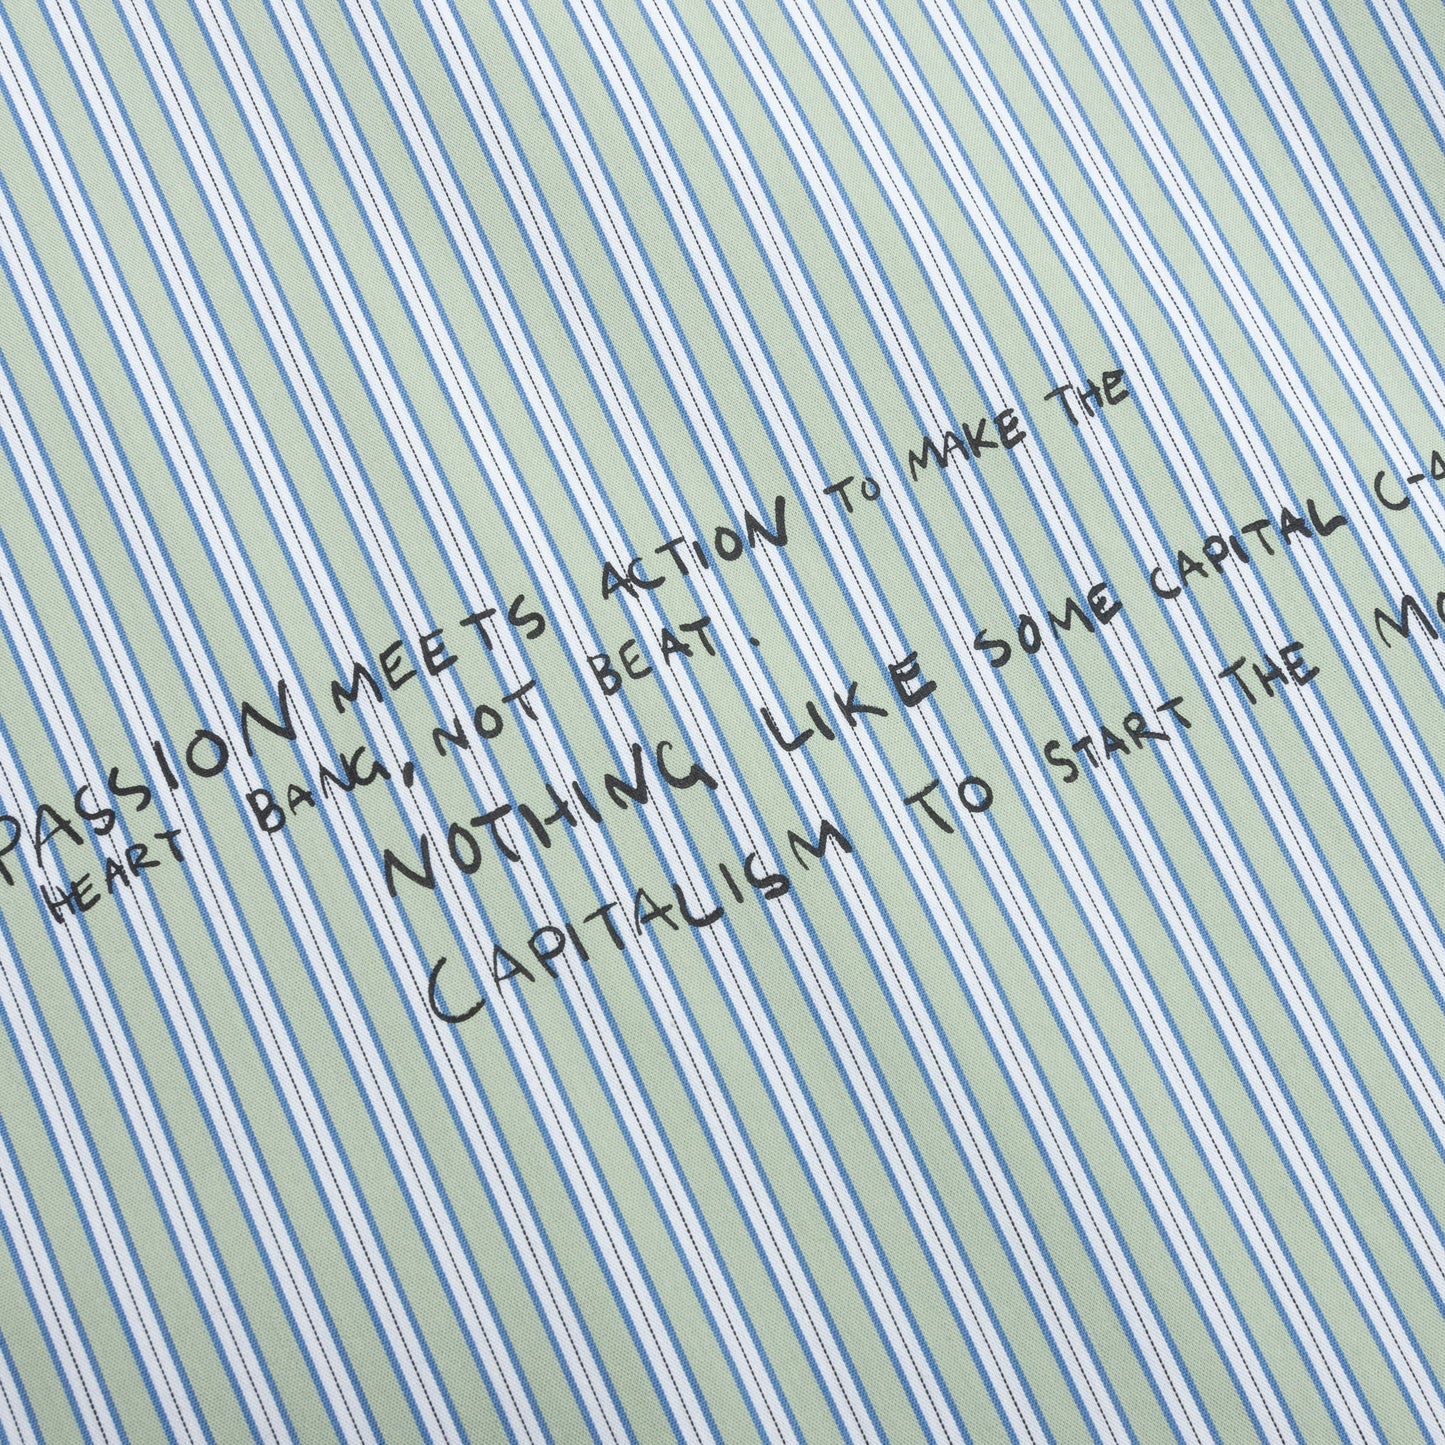 PASSION MEETS ACTION TO MAKE THE
HEART BANG, NOT BEAT.
NOTHING LIKE SOME CAPITAL
CAPITALISM TO START THE